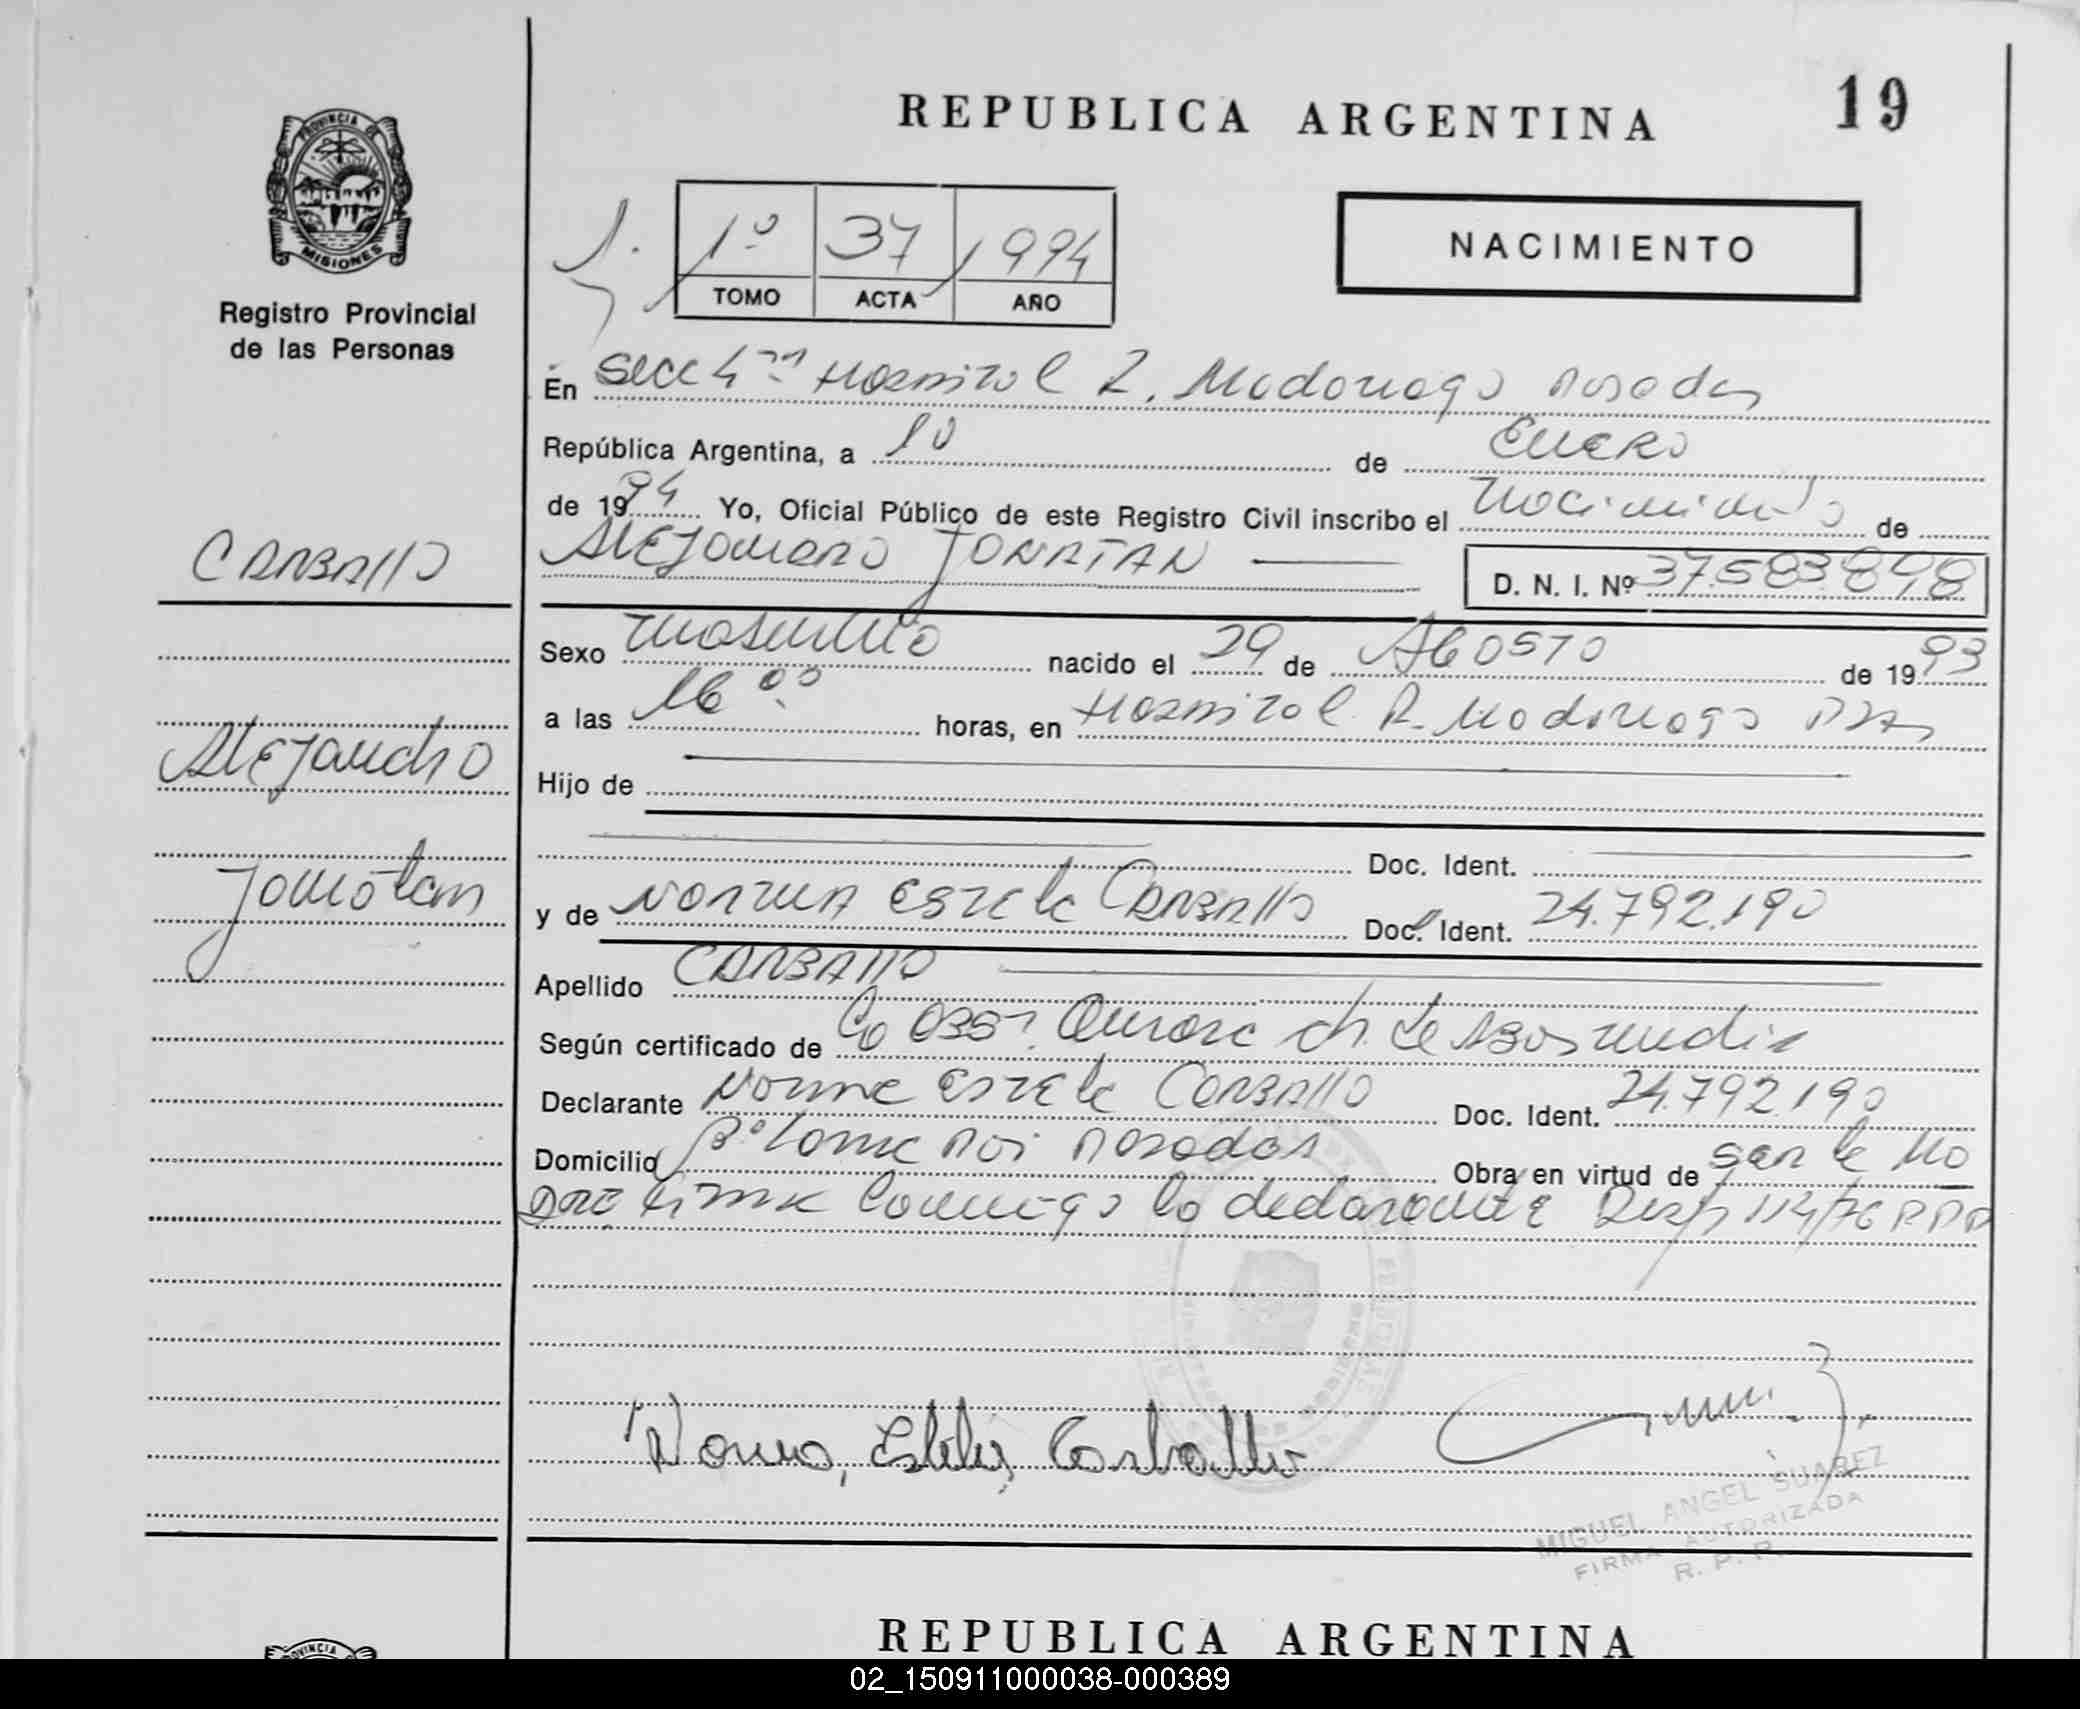 REPUBLICA ARGENTINA
19
PROVINCIA DE
MISIONES
Registro Provincial
de las Personas
1º 37 1994
TOMO ACTA AÑO
NACIMIENTO
En Secc 4ta Hospital R. Madariaga Posadas
República Argentina, a 10 de Enero
de 1994 Yo, Oficial Público de este Registro Civil inscribo el nacimiento de
CARBALLO
Alejandro JONATAN
D. N. I. Nº 37.583.898
Sexo masculino nacido el 29 de Agosto de 1993
a las 16 00 horas, en Hospital R. Madariaga Pdas
Alejandro
Hijo de
Doc. Ident.
Jonatan
y de NORMA Estela CARBALLO Doc. Ident. 24.792.190
Apellido CARBALLO
Según certificado de la Obst. Aurora Ch. de
Declarante Norma Estela CARBALLO Doc. Ident. 24.792.190
Domicilio Bº Posadas Obra en virtud de ser la Ma
dre firma conmigo la declarante 114/76 RPP
Norma, Estela, Carballo
MIGUEL ANGEL SUAREZ
FIRMA AUTORIZADA
R. P. P.
REPUBLICA ARGENTINA
PROVINCIA
02_150911000038-000389